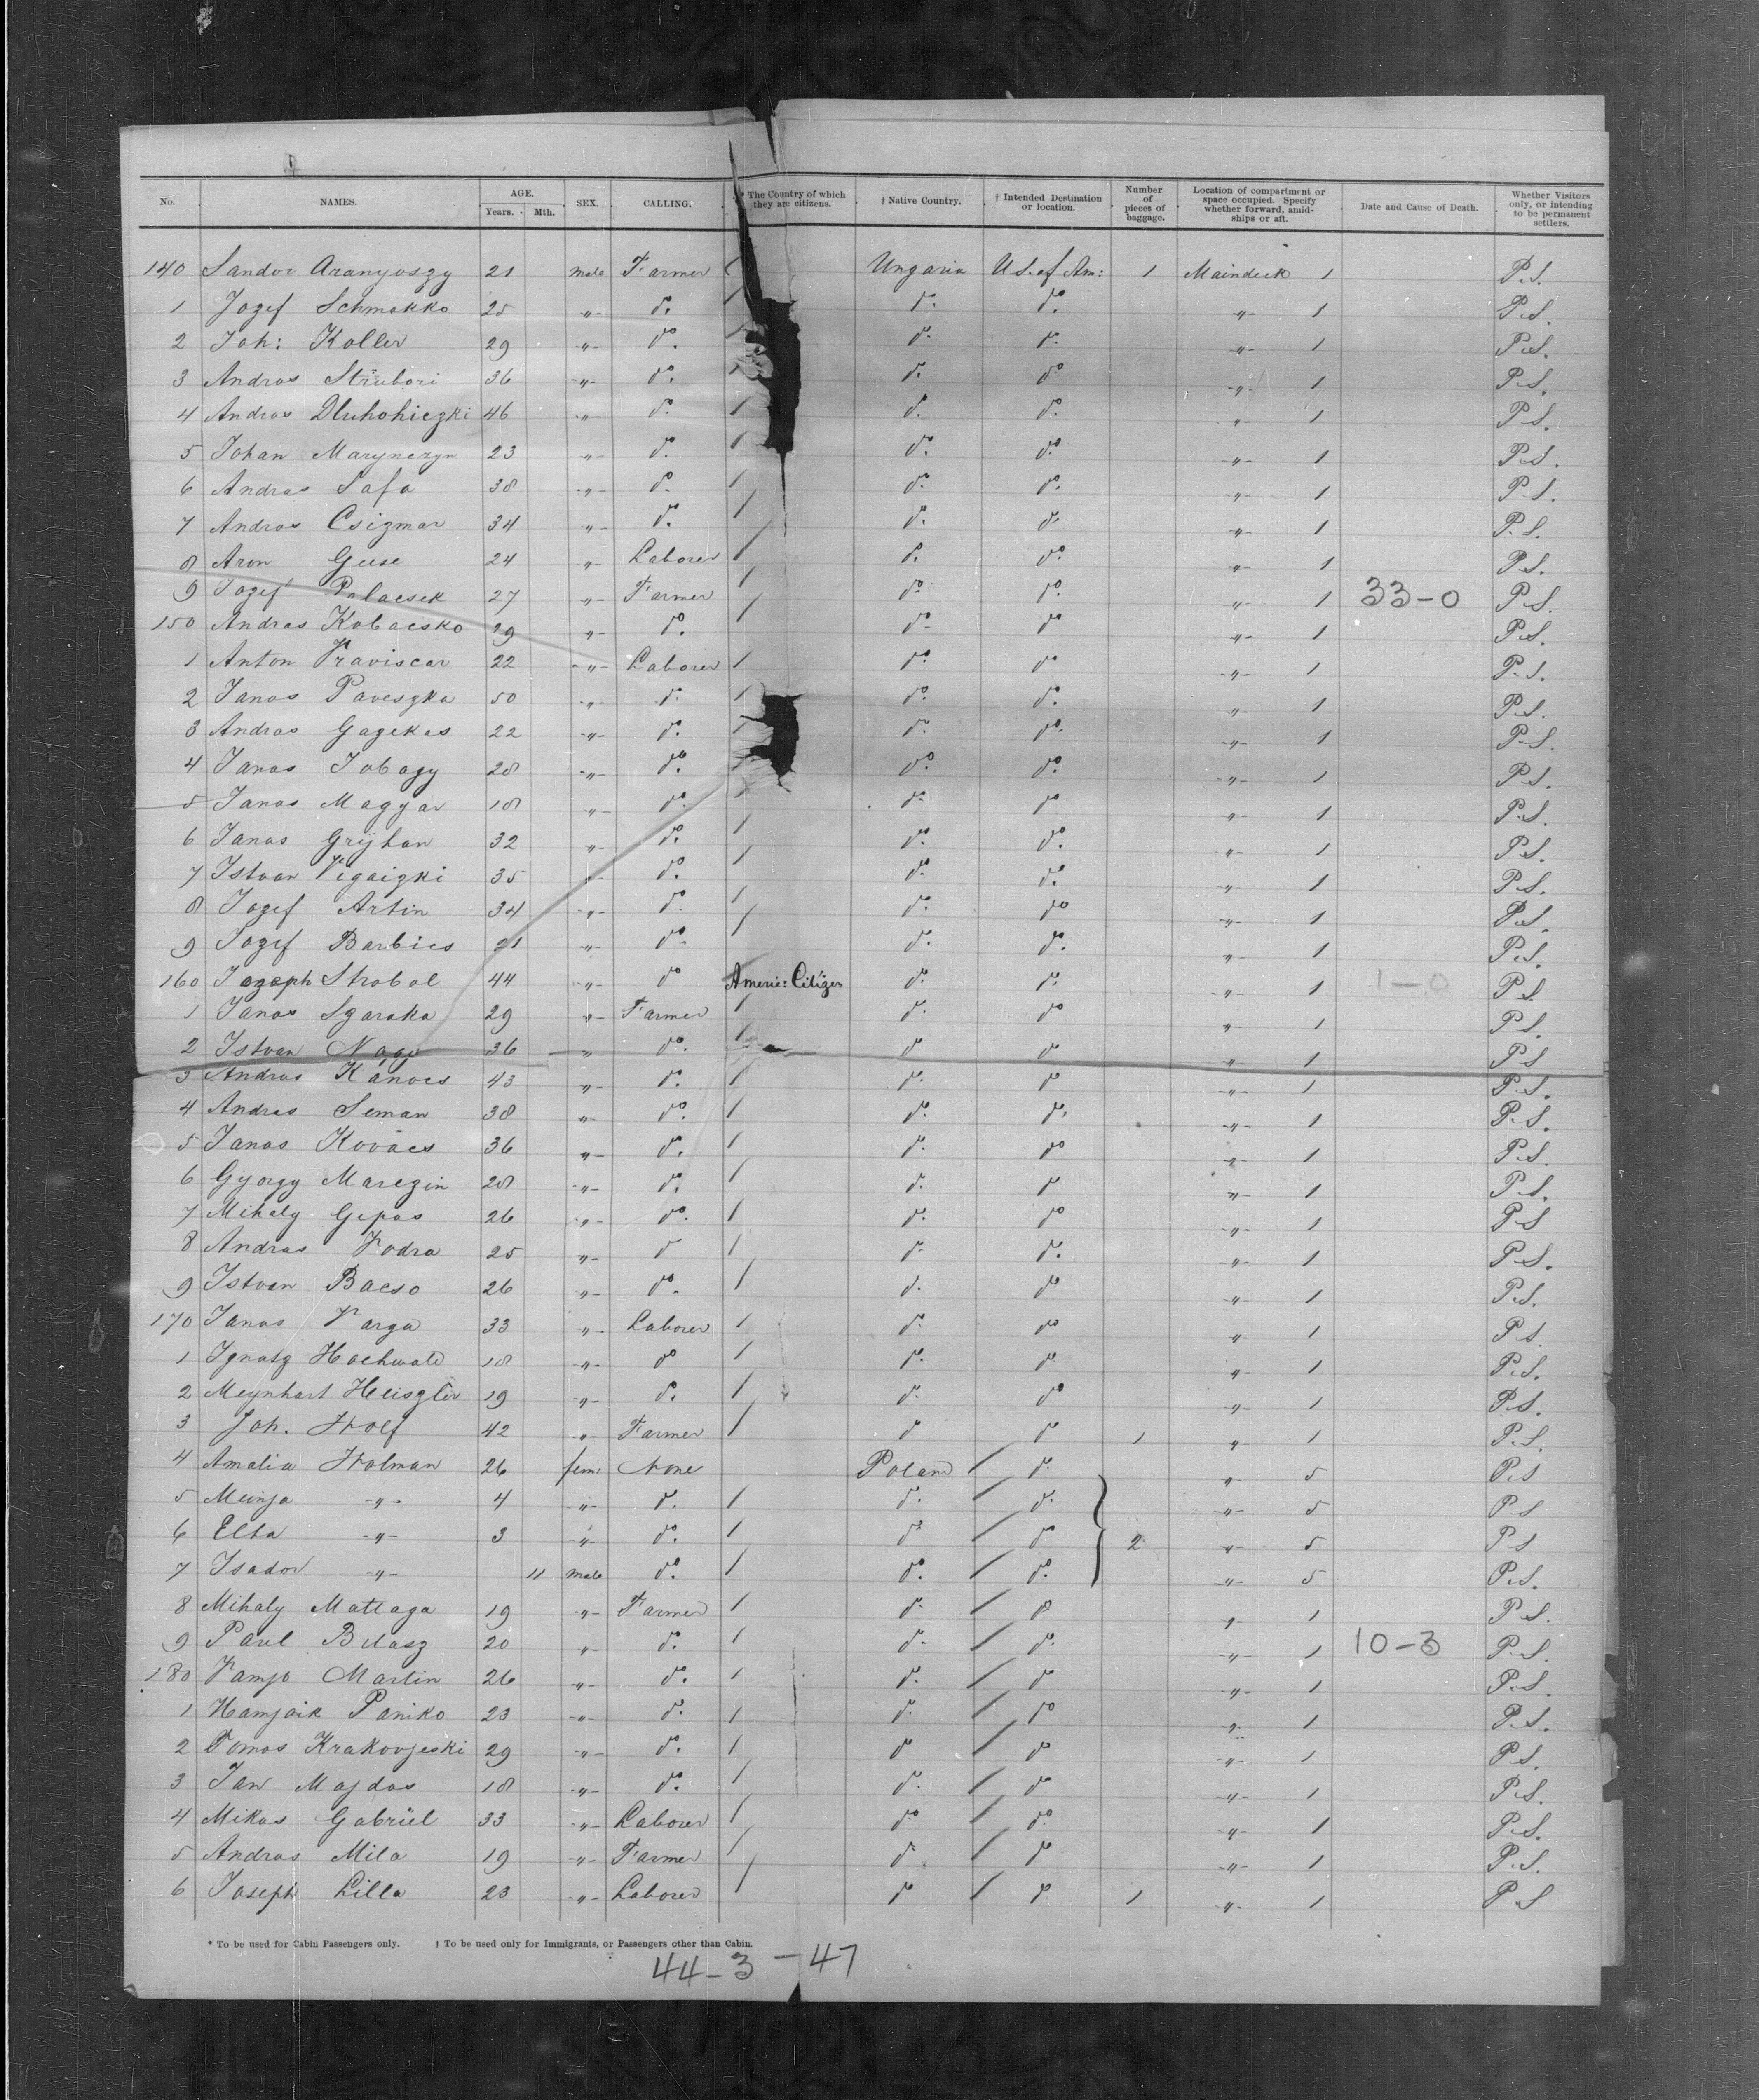 No. NAMES. AGE. Years. Mth. SEX. CALLING. * The Country of which they are citizens. † Native Country. † Intended Destination or location. Number of pieces of baggage. Location of compartment or space occupied. Specify whether forward, amidships or aft. Date and Cause of Death. Whether Visitors only, or intending to be permanent setilers.
140 Sandor Aranyoszy 21 male Farmer / Ungaria U S. of Am: 1 Maindeck 1 P.S.
1 Jozef Schmakko 25 -"- do. / do. do. -"- 1 P.S.
2 Joh: Koller 29 -"- do. / do. do. -"- 1 P.S.
3 Andras 36 -"- do. / do. do -"- 1 P.S.
4 Andras Dluhohiczki 46 -"- do. / do. do. -"- 1 P.S.
5 Johan 23 -"- do. / do. do. -"- 1 P.S.
6 Andras Safa 38 -"- do. / do. do. -"- 1 P.S.
7 Andras Csizmar 34 -"- do. / do. do. -"- 1 P.S.
8 Aron 24 -"- Laborer / do. do. -"- 1 P.S.
9 Jozef Polacsek 27 -"- Farmer / do. do. -"- 1 33-0 P.S.
150 Andras Kobacsko 29 -"- do. / do. do -"- 1 P.S.
1 Anton Traviscar 22 -"- Laborer / do. do -"- 1 P.S.
2 Janos Paveszka 50 -"- do. / do. do. -"- 1 P.S.
3 Andras Gazekas 22 -"- do. / do. do. -"- 1 P.S.
4 Janos Jobagy 28 -"- do. / do. do. -"- 1 P.S.
5 Janos Magyar 18 -"- do. / do. do -"- 1 P.S.
6 Janos Grijhan 32 -"- do. / do. do. -"- 1 P.S.
7 Istvan 35 -"- do. / do. do. -"- 1 P.S.
8 Jozef Artin 34 -"- do. / do. do -"- 1 P.S.
9 Jozef Barbies 21 -"- do. / do. do. -"- 1 P.S.
160 Jozeph Strobol 44 -"- do Americ: Citizen do. do. -"- 1 1-0 P.S.
1 Janos Szaraka 29 -"- Farmer / do. do -"- 1 P.S.
2 Istvan Nagy 36 -"- do. / do do -"- 1 P.S
3 Andras Kanocs 43 -"- do. / do. do -"- 1 P.S.
4 Andras Seman 38 -"- do. / do. do. -"- 1 P.S.
5 Janos Kovacs 36 -"- do. / do. do -"- 1 P.S.
6 Gyorgy Marczin 28 -"- do. / do. do -"- 1 P.S.
7 Mihaly Gepas 26 -"- do. / do. do -"- 1 P.S
8 Andras Fodra 25 -"- do / do. do. -"- 1 P.S.
9 Istvan Bacso 26 -"- do. / do. do -"- 1 P.S.
170 Janos Varga 33 -"- Laborer / do. do -"- 1 P.S.
1 Ignatz Hochwald 18 -"- do / do. do -"- 1 P.S.
2 Meynhart Heiszler 19 -"- do. / do. do -"- 1 P.S.
3 Joh. Wolf 42 -"- Farmer / do do 1 -"- 1 P.S.
4 Amalia Holman 26 fem: None Poland / do. -"- 5 P.S
5 Meinja -"- 4 -"- do. / do. / do. -"- 5 P S
6 Elta -"- 3 -"- do. / do. / do 2 -"- 5 P S
7 Isador -"- 11 male do. / do. / do. -"- 5 P.S.
8 Mihaly Mattaga 19 -"- Farmer / do. / do -"- 1 P.S.
9 Paul Belasz 20 -"- do. / do. / do. -"- 1 10-3 P.S.
180 Vamjo Martin 26 -"- do. / do. / do -"- 1 P.S.
1 Hamjaik Paniko 23 -"- do. / do. / do -"- 1 P.S.
2 Tomas Krakovjeski 29 -"- do. / do / do -"- 1 P.S.
3 Jan Majdas 18 -"- do. / do. / do -"- 1 P.S.
4 Mikas Gabriel 33 -"- Laborer / do / do. -"- 1 P.S.
5 Andras Mila 19 -"- Farmer / do. / do -"- 1 P.S.
6 Joseph Lilla 23 -"- Laborer / do / do 1 -"- 1 P.S
* To be used for Cabin Passengers only. † To be used only for Immigrants, or Passengers other than Cabin.
44-3-47